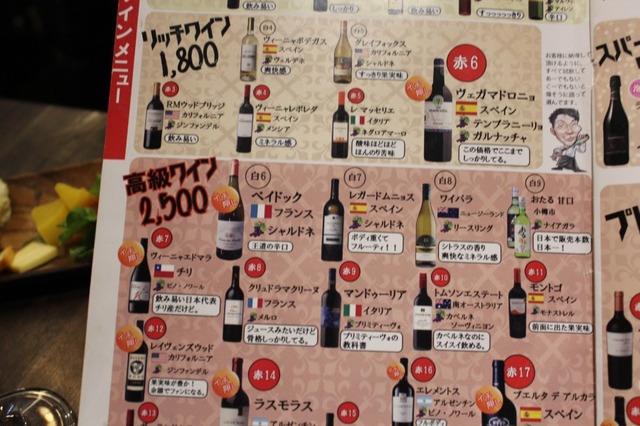 インメニュー
リッチワイン
1,800
白4
ヴィーニャボデガス
スペイン
ヴェルデホ
爽快感
白5
グレイフォックス
カリフォルニア
シャルドネ
すっきり果実味
赤3
RMウッドブリッジ
カリフォルニア
ジンファンデル
飲み易い
赤4
ヴィーニャレポレダ
スペイン
メンシア
ミネラル感
赤5
レ マッセリエ
イタリア
ネグロアマーロ
酸味ほどほど
ほんのり苦味
赤6
ヴェガマドロニョ
スペイン
テンプラニーリョ
ガルナッチャ
この価格でここまで
しっかりしてる。
高級ワイン
2,500
白6
ペイドック
フランス
シャルドネ
王道の辛口
白7
レガードムニョス
スペイン
シャルドネ
ボディ重くて
フルーティ!!
白8
ワイパラ
ニュージーランド
リースリング
シトラスの香り
爽快なミネラル感
白9
おたる 甘口
小樽市
ナイアガラ
日本で販売本数
日本一!
赤7
ヴィーニャエドマラ
チリ
ピノ・ノワール
飲み易い日本代表
チリ産だけど。
赤8
クリュドラマクリーヌ
フランス
メルロ
ジュースみたいだけど
骨格しっかりしてる。
赤9
マンドゥーリア
イタリア
プリミティーヴォ
プリミティーヴォの
教科書
赤10
トムソンエステート
南オーストラリア
カベルネ
ソーヴィニヨン
カベルネなのに
スイスイ飲める。
赤11
モンテゴ
スペイン
モナストレル
前面に出た果実味
赤12
レイヴェンズウッド
カリフォルニア
ジンファンデル
果実味が豊か!
余韻でファンになる。
赤13
赤14
ラスモラス
アルゼンチン
赤15
赤16
エレメントス
アルゼンチン
ピノ・ノワール
赤17
プエルタ デ アルカラ
スペイン